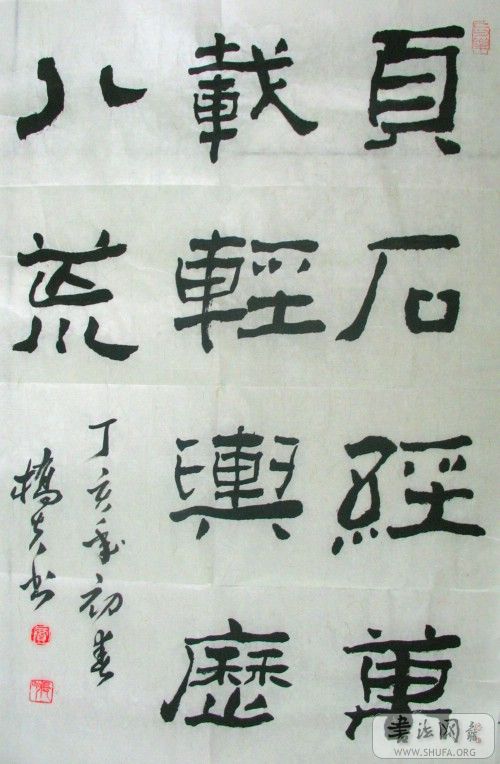 頁石經萬
載輕輿歷
八荒
丁亥年初春
橋夫书
书法网
WWW.SHUFA.ORG